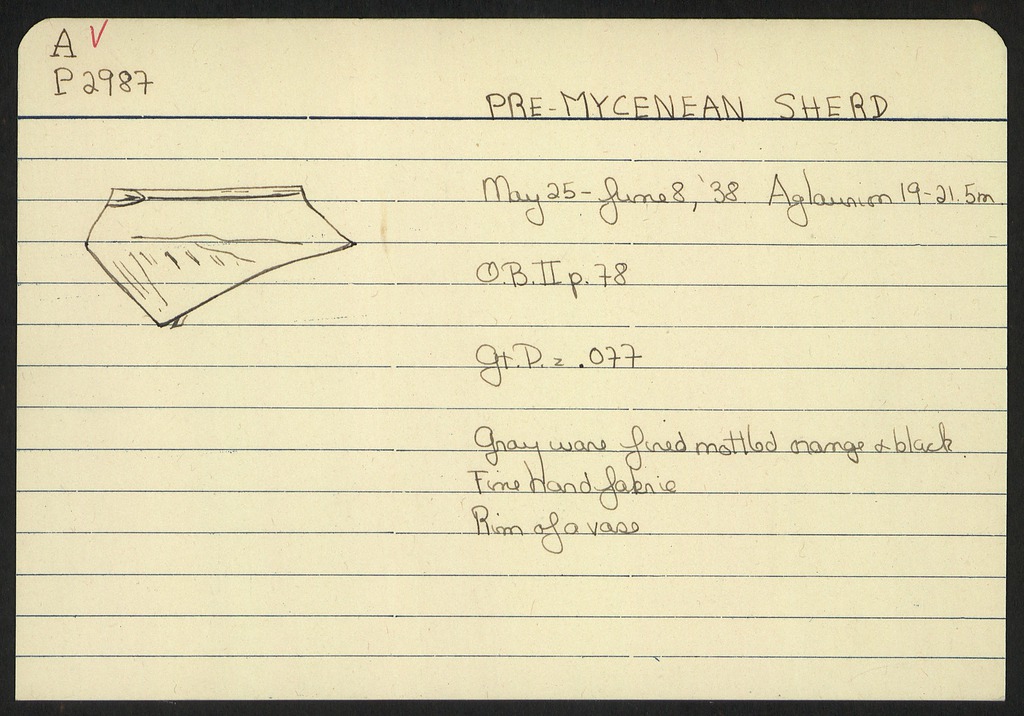 A V
P 2987
PRE-MYCENEAN SHERD
May 25 - June 8, '38 Aglaurion 19-21.5m
O.B.II p. 78
Gt.D. = .077
Gray ware fired mottled orange & black
Fine hard fabric
Rim of a vase